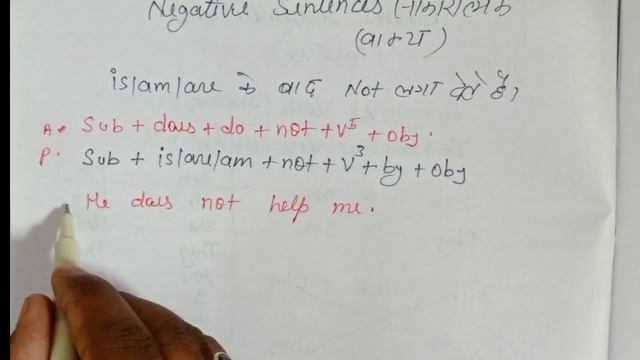 Negative Sentences (नाकारात्मक
(वाक्य)
is/am/are के बाद Not लगा देते हैं।
A. Sub + does + do + not + V¹ + Obj.
P. Sub + is/are/am + not + V³ + by + Obj
He does not help me.